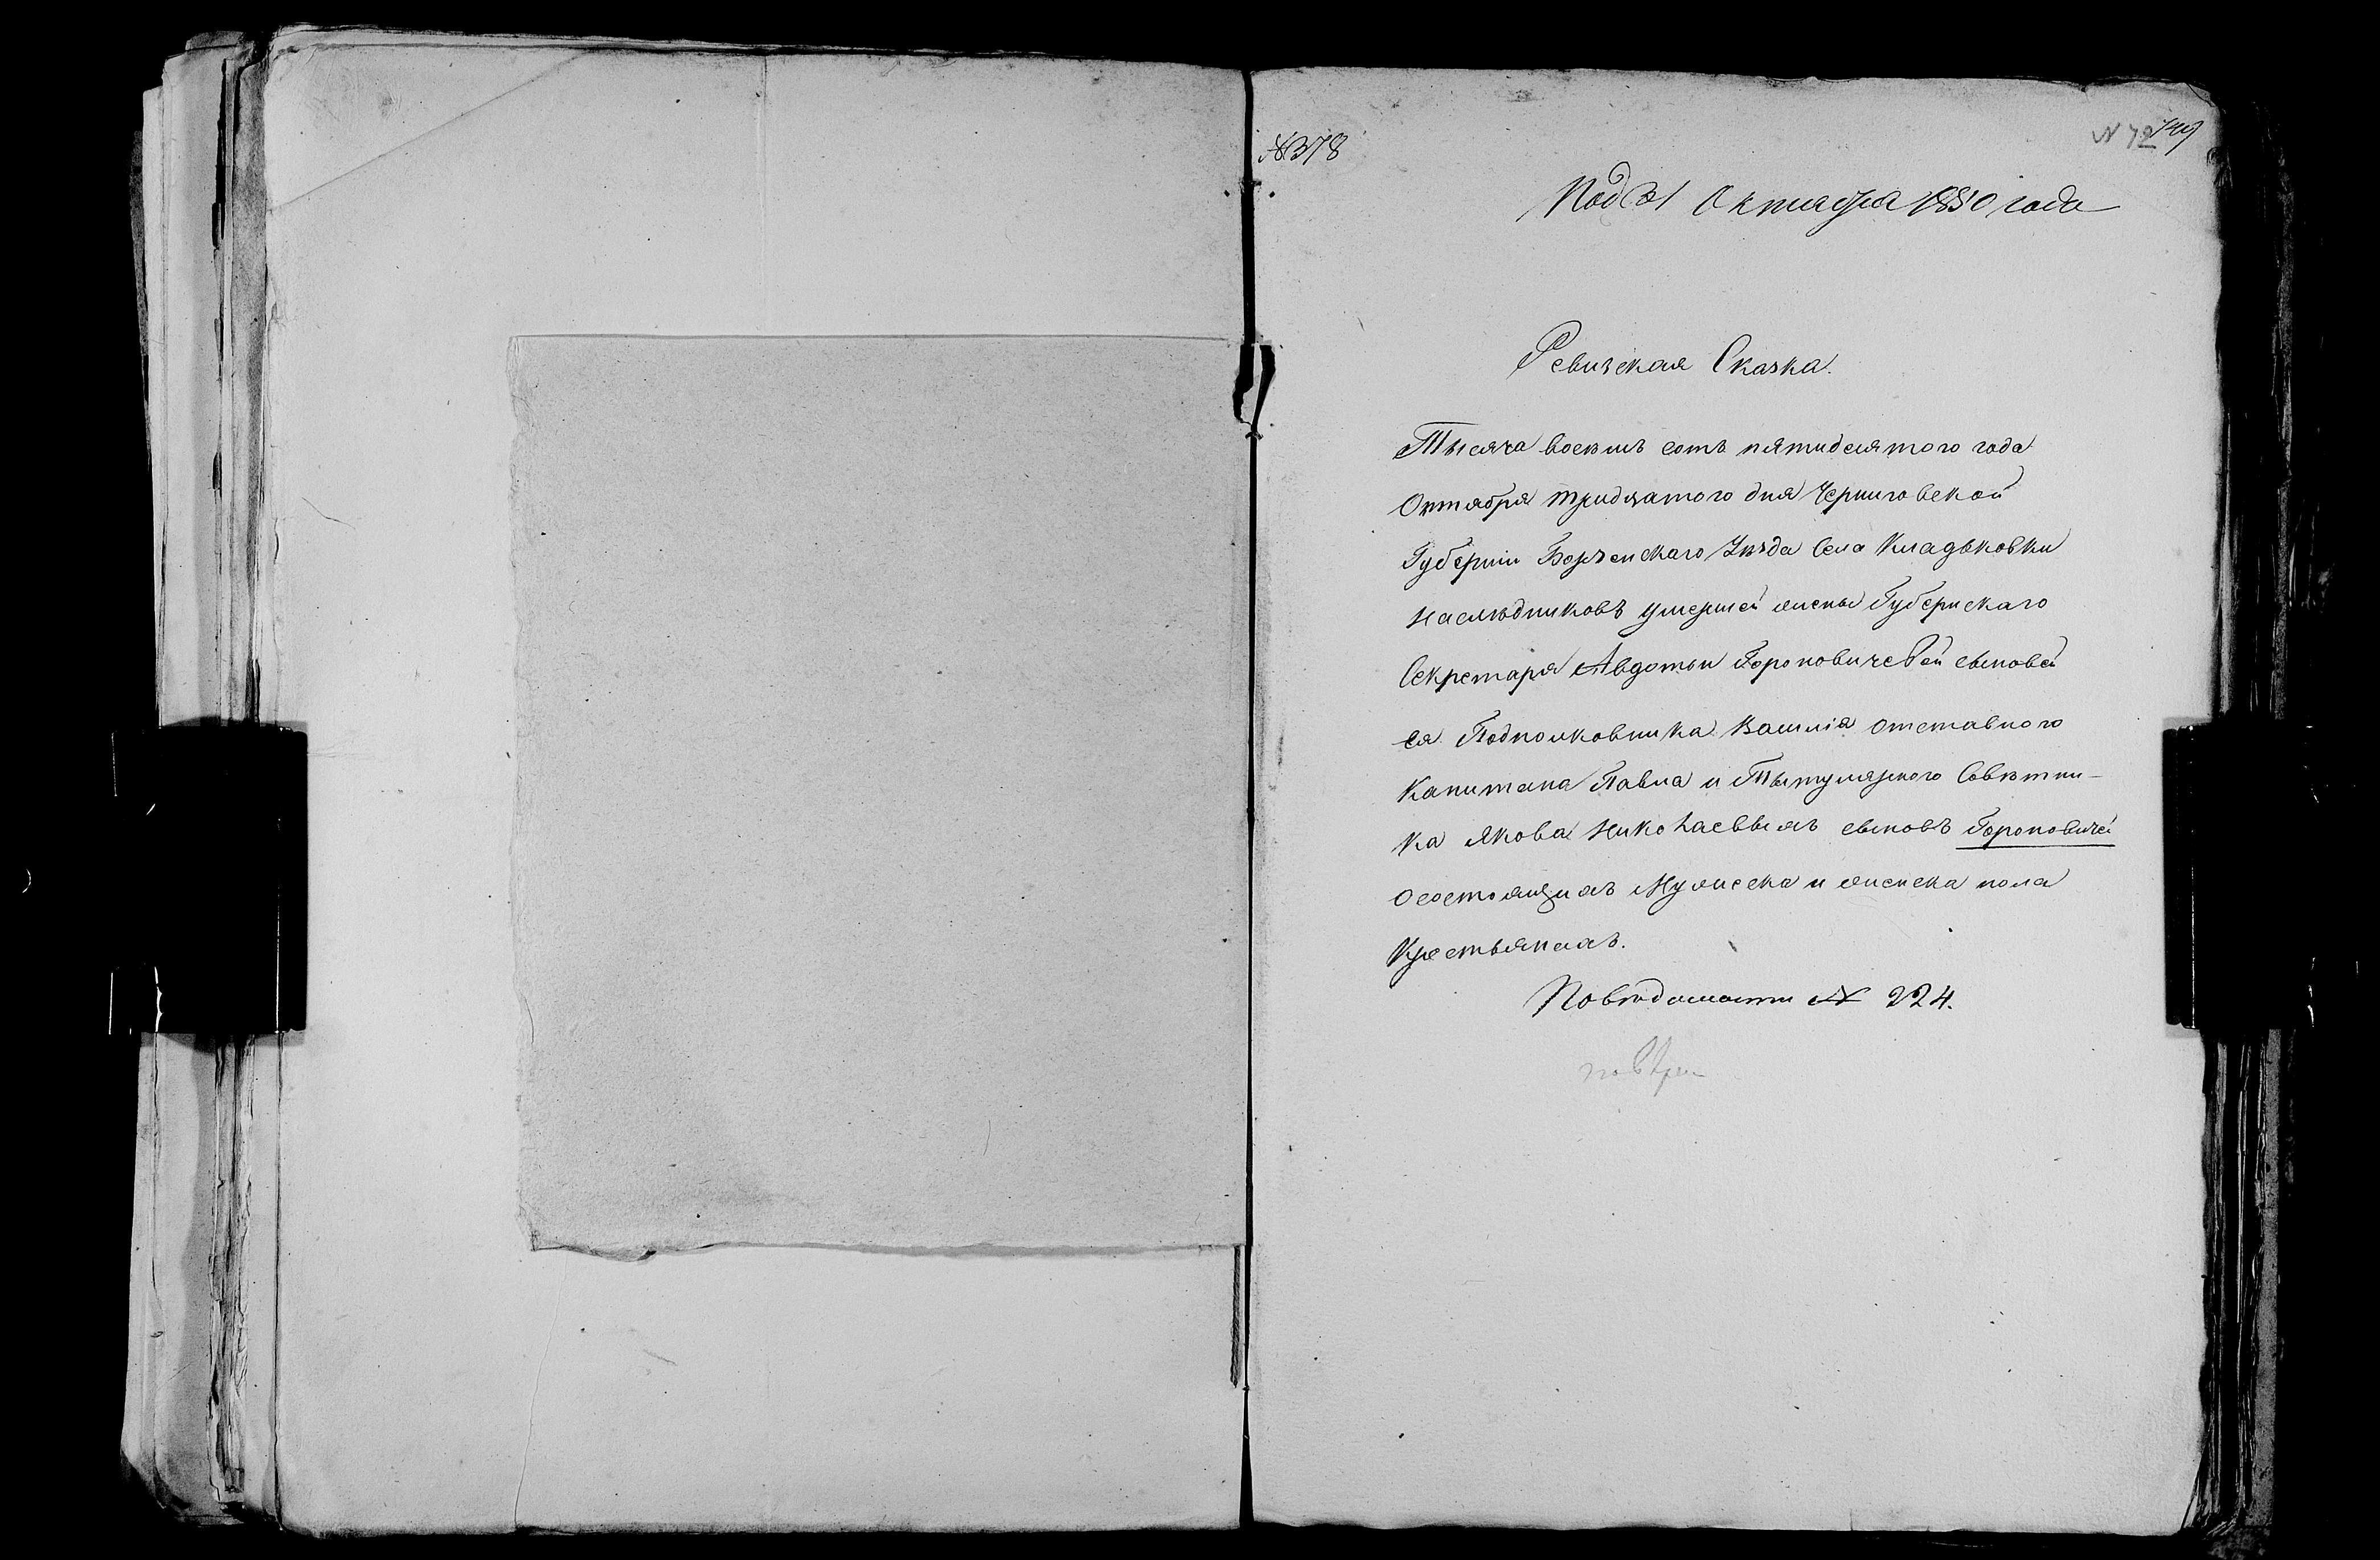 № 378
N 72 149
Под 31 Октября 1850 года
Ревизская Сказка.
Тысяча восемь сотъ пятидесятого года
Октября тридцатого дня Черниговской
Губерніи Борзенскаго Уѣзда Села Кладьковки
наслѣдниковъ умершей жены Губернскаго
Секретаря Авдотьи Гороновичевой сыновей
ея Подполковника Василія отставного
Капитана Павла и Тытулярного Совѣтни-
ка Якова Николаевыхъ сыновъ Гороновичей
осостоящихъ Мужеска и женска пола
Крестьянахъ.
По вѣдомости № 224.